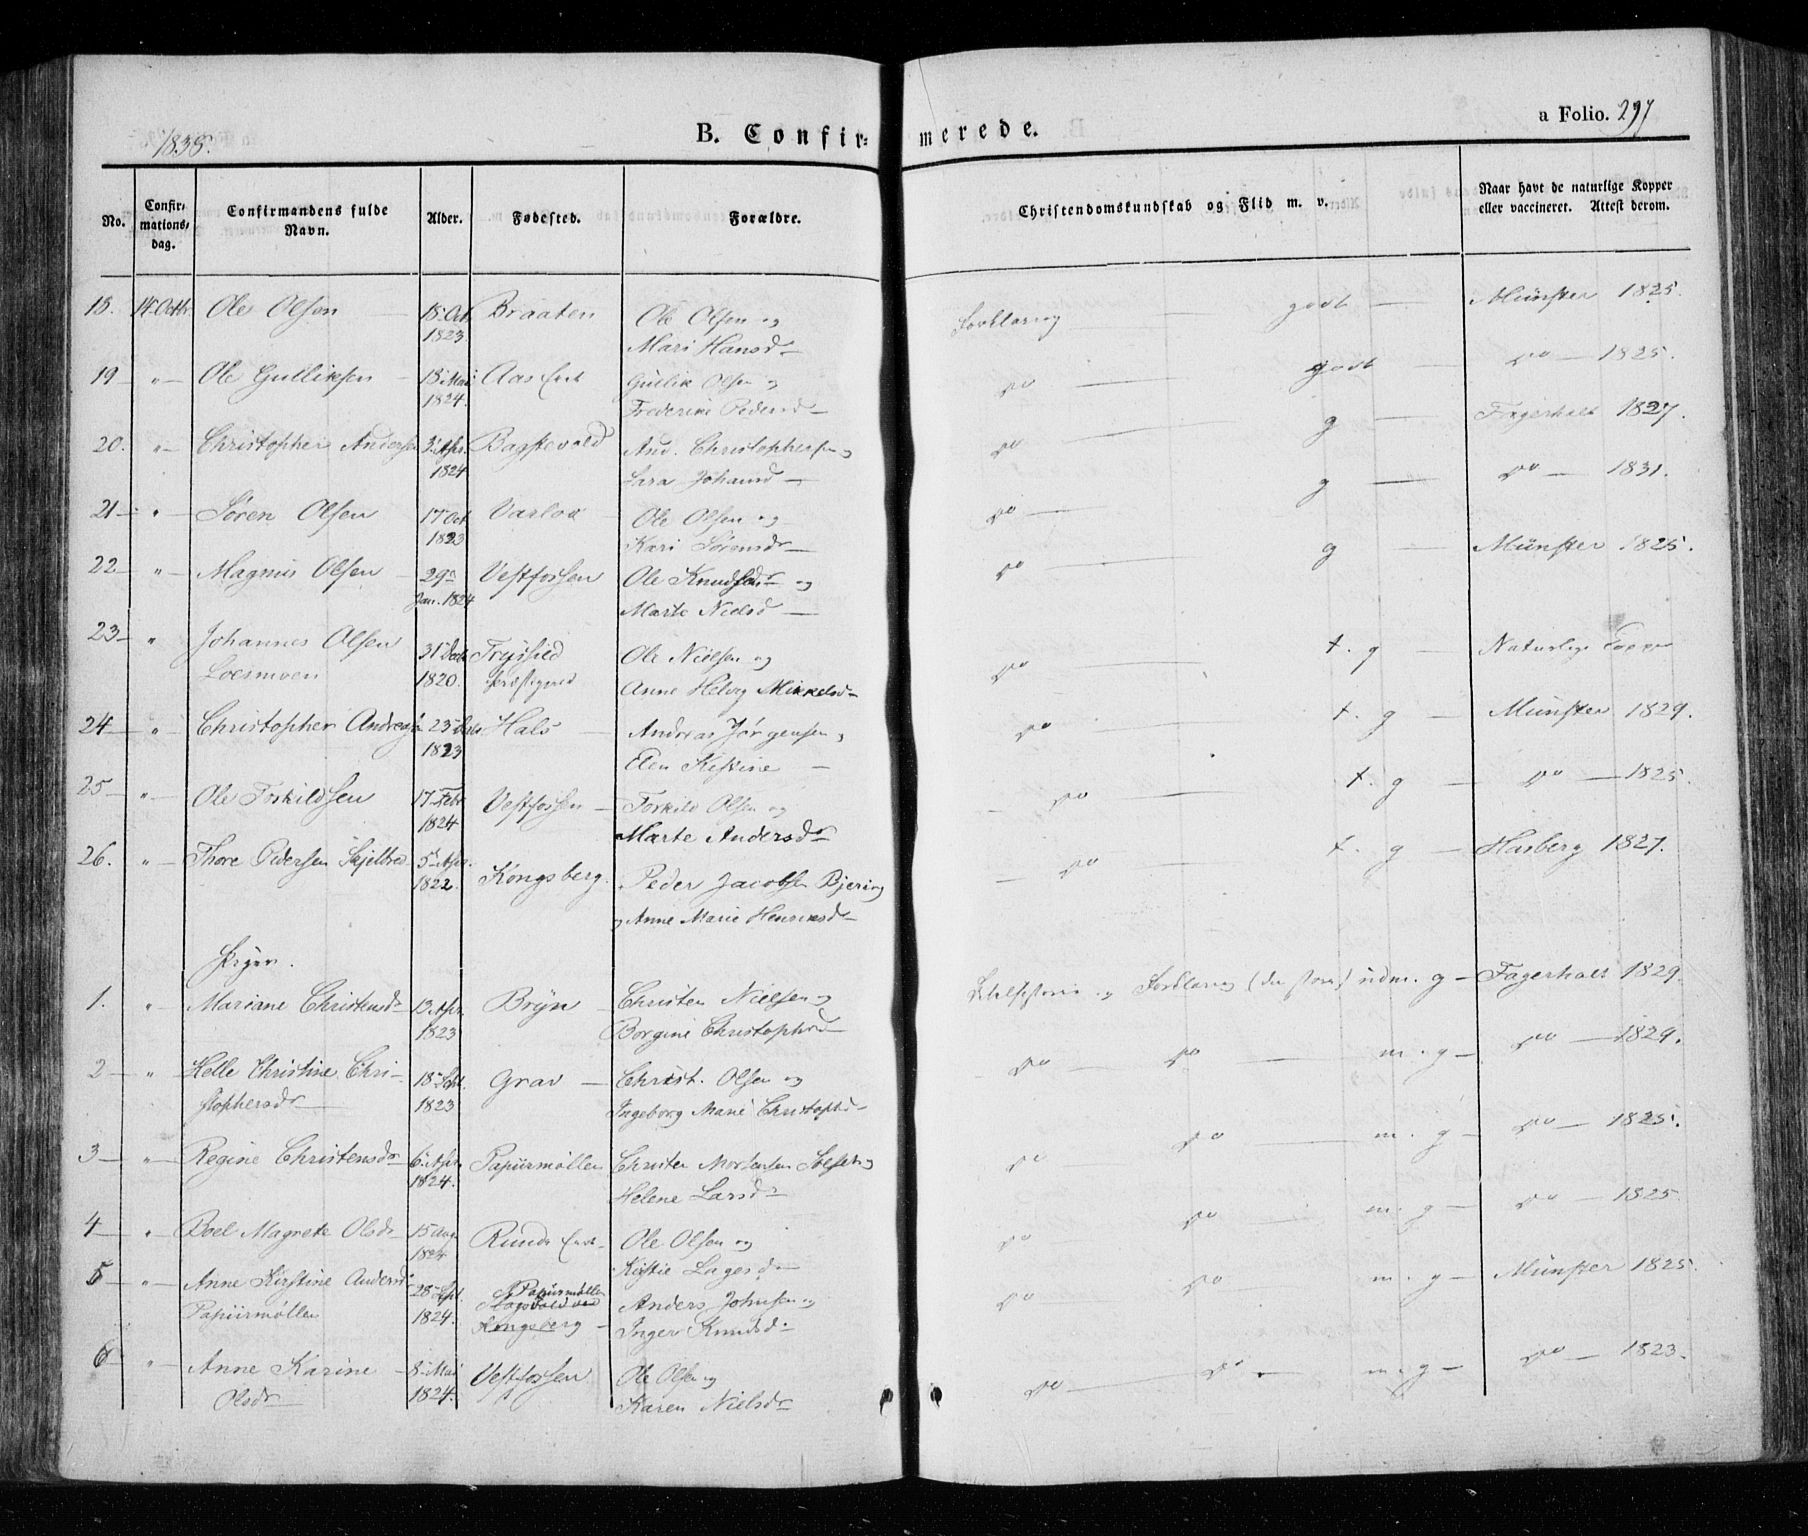 1838.
B. Confirmerede.
a Folio. 297
No.
Confirmationsdag.
Confirmandens fulde Navn.
Alder.
Fødested.
Forældre.
Christendomskundskab og Flid m. v.
Naar havt de naturlige Kopper eller vaccineret. Attest derom.
18. 14 Octbr Ole Olsen 18 Oct Braaten Ole Olsen og Forklaring godt Münster 1825.
1823 Mari Hansd
19 " Ole Gulliksen 18 Mai Aas Gullik Olsen og do godt do 1825.
1824. Frederike Pedersd
20. " Christopher Andersen 3 Apr. And. Christophersen og do g Fagerholt 1827.
1824 Lara Johansd
21 " Søren Olsen 17 Oct Varlox Ole Olsen og do g do 1831.
1823 Kari Sørensdr
22 " Magnus Olsen 29 Vestfossen Ole Knudsen og do g Münster 1825.
Jan. 1824 Marte Nielsd
23 " Johannes Olsen 31 Decbr Ole Nielsen og do t. g Naturlige Kopper
Loesmoen 1820. Anne Helvig Mikkelsd
24 " Christopher Andreasen 23 Hals Andreas Jørgensen og do t. g Münster 1829.
1823 Elen Kistine
25 " Ole Torkildsen 17 Febr Vestfossen Torkild Olsen og do t. g do 1825.
1824 Marte Andersdr
26. " Thore Pedersen Skjelbred 5 Apr. Kongsberg. Peder Jacobsen Bjering do t. g Hasberg 1827.
1822. og Anne Marie Henriksdr
Piger.
1. " Mariane Christensdr 13 Apr. Bryn Christen Nielsen og Bibelhistorie og Forklaring (den store) udm. g Fagerholt 1829.
1823 Borgine Christophd
2 " Helle Christine Chri- 18 Sept. Grav Christ. Olsen og do do m. g do 1829.
stophersdr 1823 Ingeborg Marie Christophd
3 " Regine Christensdr 6 Apr. Papiirmøllen Christen Mortensen og do do m. g do 1825.
1824. Helene Larsdr
4 " Boel Magrete Olsdr 15 Aug Ole Olsen og do do m. g do 1825.
1824 Kistie Lagesd
5 " Anne Kirstine Andersd 28 Sept. Papiirmøllen Anders Johnsen og do do m. g Münster 1825.
Papiirmøllen 1824. Kongsberg Inger Knudsd
6 " Anne Karine 8 Mai Vestfossen Ole Olsen og do do m. g do 1823.
Olsdr 1824. Karen Nielsdr